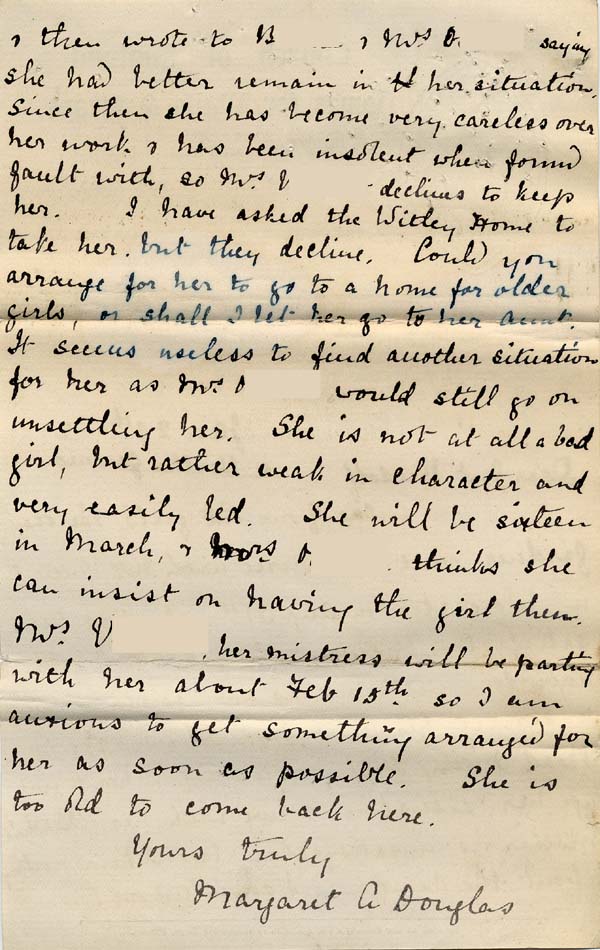 & then wrote to B & Mrs O. saying
she had better remain in her situation.
Since then she has become very careless over
her work & has been insolent when found
fault with, so Mrs V declines to keep
her. I have asked the Witley Home to
take her. but they decline. Could you
arrange for her to go to a home for older
girls, or shall I let her go to her aunt.
It seems useless to find another situation
for her as Mrs O would still go on
unsettling her. She is not at all a bad
girl, but rather weak in character and
very easily led. She will be sixteen
in March, & Mrs O. thinks she
can insist on having the girl then.
Mrs V , her mistress will be parting
with her about Feb 15th so I am
anxious to get something arranged for
her as soon as possible. She is
too old to come back here.
Yours truly
Margaret A Douglas